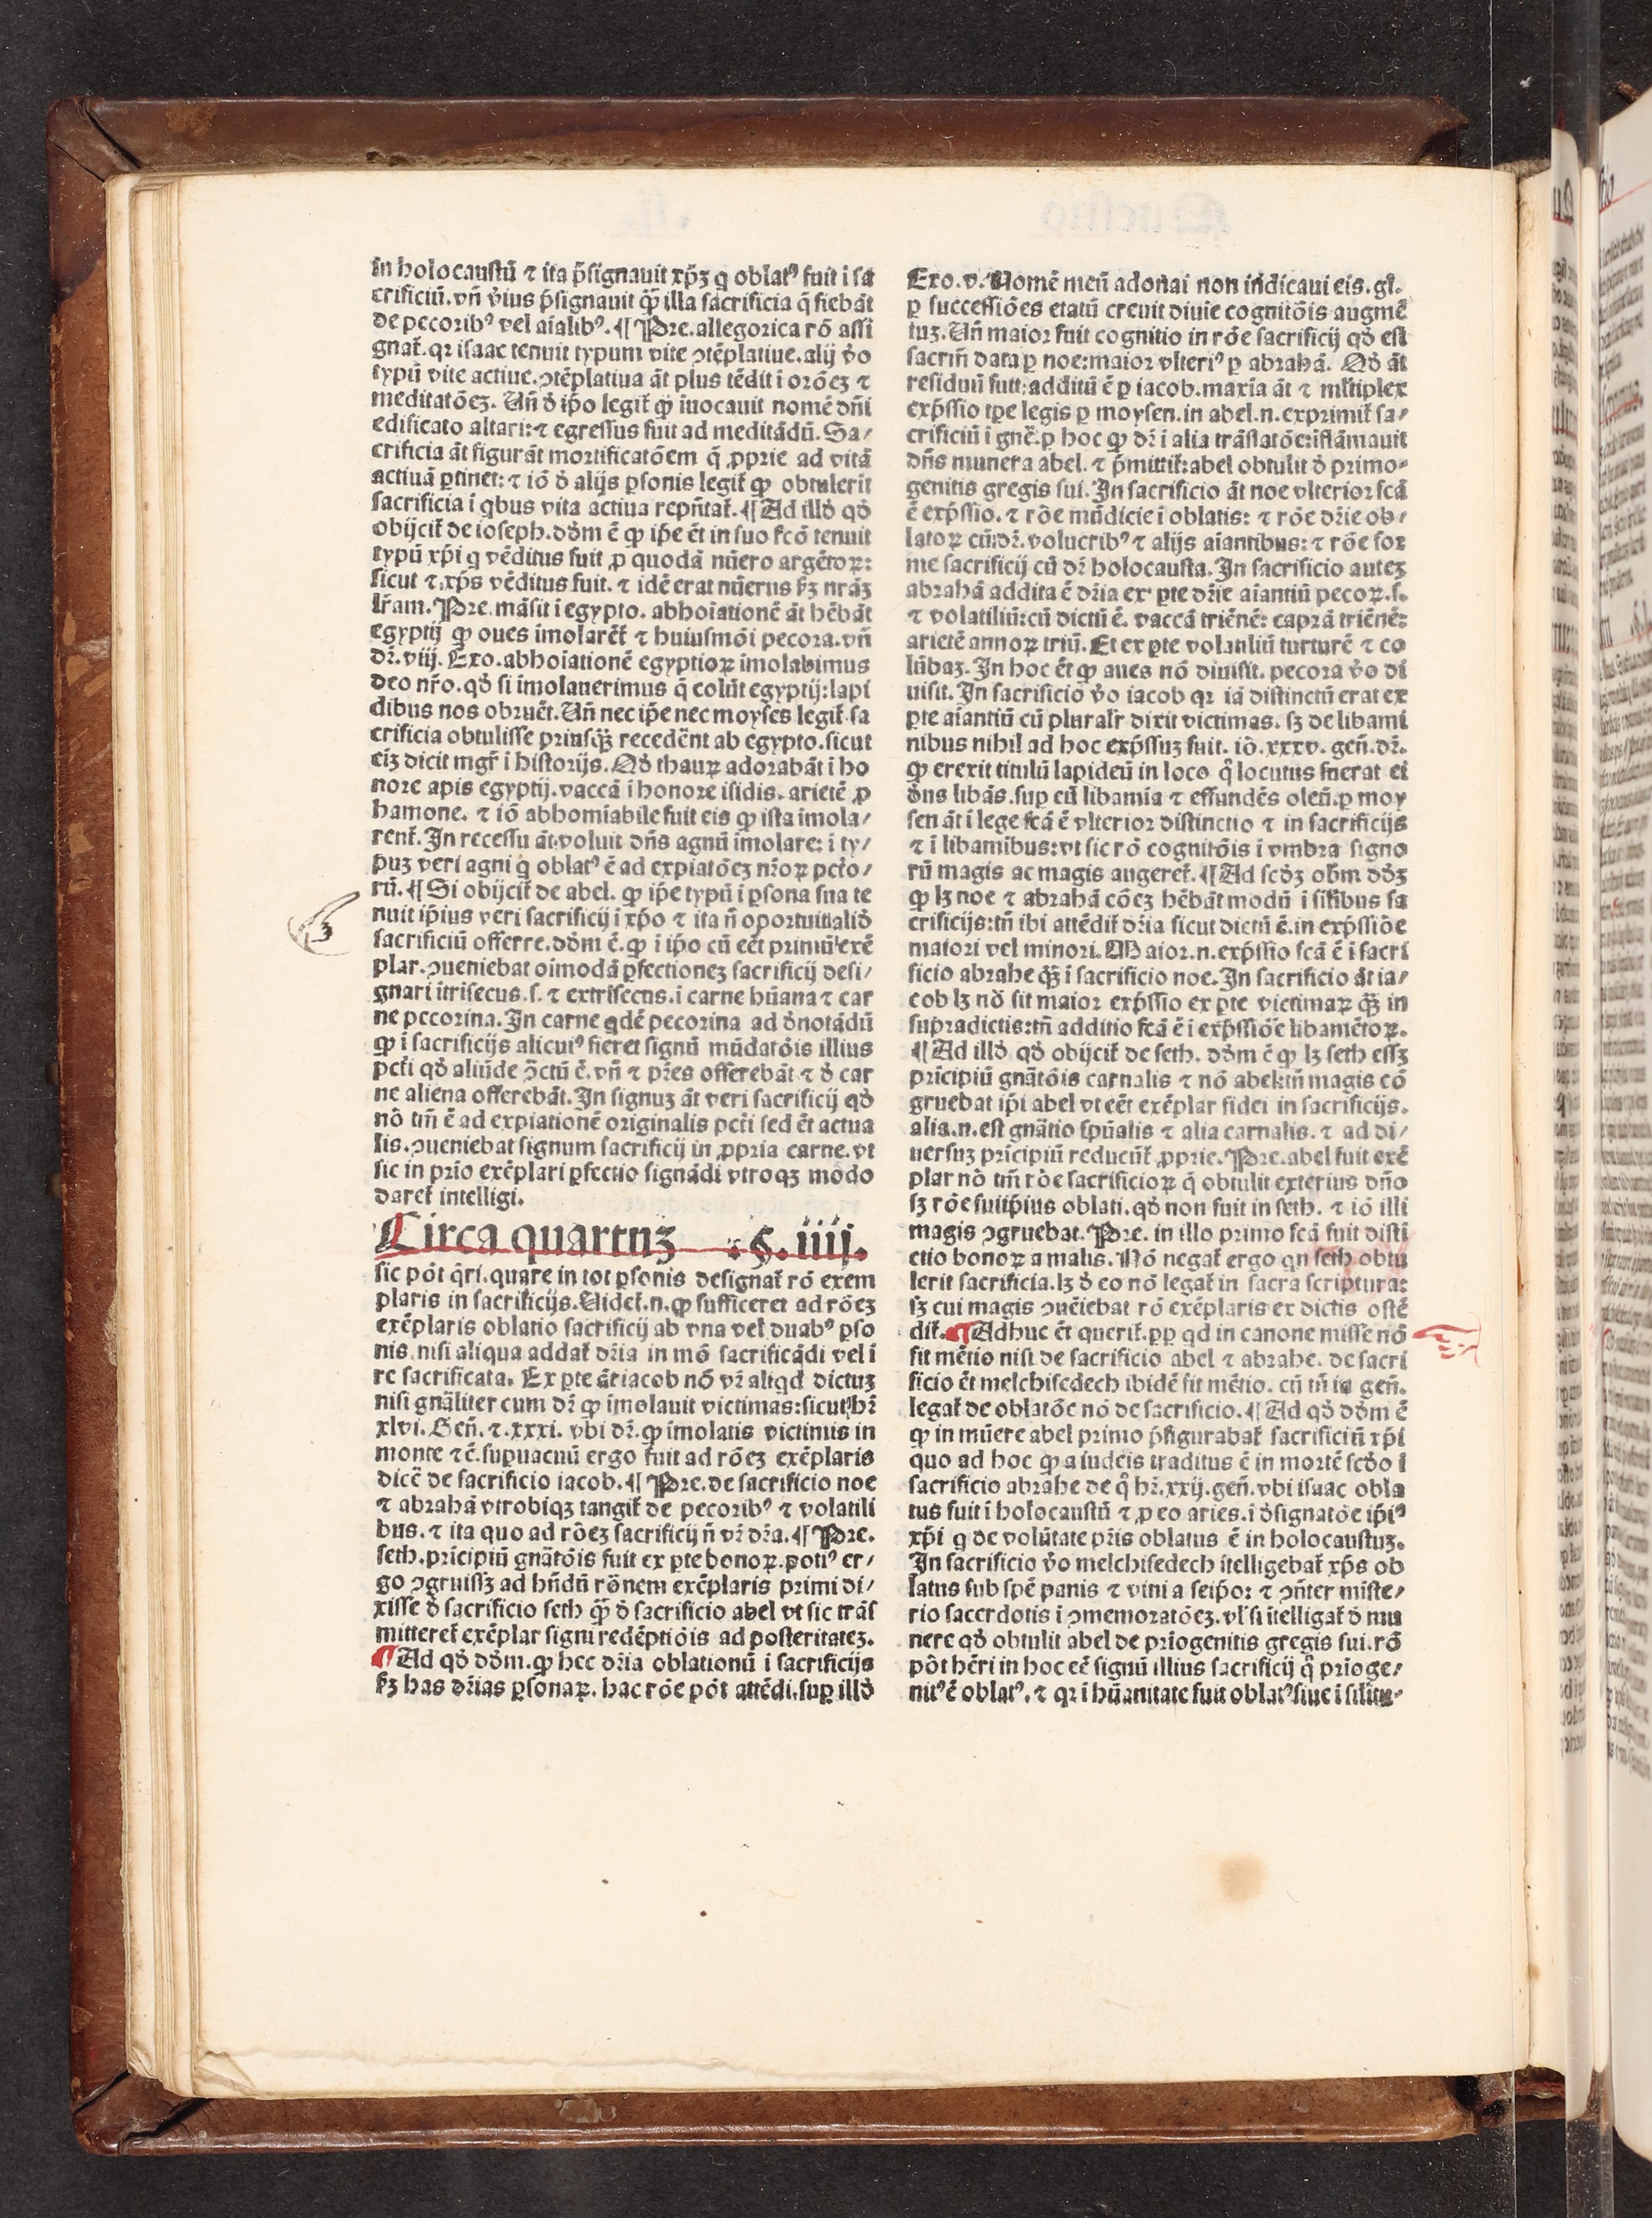 in holocaustū ⁊ ita p̄signauit xp̄ꝫ q oblatꝰ fuit i sa
crificiū. vn̄ v̓ius p̄signauit qȝ̄ illa sacrificia q̄ fiebāt
de pecoribꝰ vel aīalibꝰ. ¶ Pre. allegorica rō assi
gnat̄. qr isaac tenuit typum vite ɔtēplatiue. alij v̓o
typū vite actiue. ɔtēplatiua āt plus tēdit i orōeꝫ ⁊
meditatōeꝫ. Un̄ d̓ ip̄o legit̄ ꝙ iuocauit nomē dn̄i
edificato altari: ⁊ egressus fuit ad meditādū. Sa/
crificia āt figurāt mortificatōem q̄ ꝓprie ad vitā
actiuā ꝑtinet: ⁊ iō d̓ alijs ꝑsonis legit̄ ꝙ obtulerit
sacrificia i qbus vita actiua repn̄tat̄. ¶ Ad illd̓ qd̓
obijcit̄ de ioseph. dd̓m ē ꝙ ip̄e ēt in suo fc̄ō tenuit
typū xp̄i q vēditus fuit ꝓ quodā nūero argētoꝝ:
sicut ⁊ xp̄s vēditus fuit. ⁊ idē erat nūerus ẜꝫ nrāꝫ
lr̄am. Pre. māsit i egypto. abhoīationē āt hēbāt
egyptij ꝙ oues imolarēt̄ ⁊ huiusmōi pecora. vn̄
dr̄. viij. Exo. abhoīationē egyptioꝝ imolabimus
deo nr̄o. qd̓ si imolauerimus q̄ colūt egyptij: lapi
dibus nos obruēt. Un̄ nec ip̄e nec moyses legit̄ sa
crificia obtulisse priusqȝ̄ recedēnt ab egypto. sicut
eīꝫ dicit mgr̄ i historijs. Qd̓ thauꝝ adorabāt i ho
nore apis egyptij. vaccā i honore isidis. arietē ꝓ
hamone. ⁊ iō abhomiabile fuit eis ꝙ ista imola/
rent̄. In recessu āt voluit dn̄s agnū imolare: i ty/
puꝫ veri agni q oblatꝰ ē ad expiatōeꝫ nr̄oꝝ pctō/
rū. ¶ Si obijcit̄ de abel. ꝙ ip̄e typū i ꝑsona sua te
nuit ip̄ius veri sacrificij i xp̄o ⁊ ita n̄ oportuit aliḋ
sacrificiū offerre. dd̓m ē. ꝙ i ip̄o cū eēt primū exē
plar. ɔueniebat oīmodā ꝑfectioneꝫ sacrificij desi/
gnari ītrisecus. s. ⁊ extrisecus. i carne hūana ⁊ car
ne pecorina. In carne qdē pecorina ad d̓notādū
ꝙ i sacrificijs alicuiꝰ fieret signū mūdatōis illius
pct̄i qd̓ aliūde ɔ̄ctū ē. vn̄ ⁊ pr̄es offerebāt ⁊ d̓ car
ne aliena offerebāt. In signuꝫ āt veri sacrificij qd̓
nō tm̄ ē ad expiationē originalis pct̄i sed ēt actua
lis. ɔueniebat signum sacrificij in ꝓpria carne. vt
sic in prīo exēplari ꝑfectio signādi vtroqꝫ modo
daret̄ intelligi.
Circa quartuꝫ .§. iiij.
sic pōt q̄ri. quare in tot ꝑsonis designat̄ rō exem
plaris in sacrificijs. Uidet̄. n. ꝙ sufficeret ad rōeꝫ
exēplaris oblatio sacrificij ab vna vel duabꝰ ꝑso
nis. nisi aliqua addat̄ dr̄ia in mō sacrificādi vel i
re sacrificata. Ex ꝑte āt iacob nō vr̄ aliqd dictuꝫ
nisi gnāliter cum dr̄ ꝙ imolauit victimas: sicut hr̄
xlvi. Gen̄. ⁊. xxxi. vbi dr̄. ꝙ imolatis victimis in
monte ⁊ē. suꝑuacuū ergo fuit ad rōeꝫ exēplaris
dicē de sacrificio iacob. ¶ Pre. de sacrificio noe
⁊ abrahā vtrobiqꝫ tangit̄ de pecoribꝰ ⁊ volatili
bus. ⁊ ita quo ad rōeꝫ sacrificij n̄ vr̄ dr̄a. ¶ Pre.
seth. pricipiū gnātōis fuit ex ꝑte bonoꝝ. potiꝰ er/
go ɔgruissꝫ ad hn̄dū rōnem exēplaris primi di/
xisse d̓ sacrificio seth qȝ̄ d̓ sacrificio abel vt sic trās
mitteret̄ exēplar signi redēptiōis ad posteritateꝫ.
¶ Ad qd̓ dd̓m. ꝙ hec dr̄ia oblationū i sacrificijs
ẜꝫ has dr̄ias ꝑsonaꝝ. hac rōe pōt attēdi. suꝑ illd̓
Exo. v. Nomē meū adonai non indicaui eis. gl̄.
ꝑ successiōes etatū creuit diuie cognitōis augmē
tuꝫ. Un̄ maior fuit cognitio in rōe sacrificij qd̓ est
sacrm̄ data ꝑ noe: maior vlteriꝰ ꝑ abrahā. Qd̓ āt
residuū fuit: additū ē ꝑ iacob. maxīa āt ⁊ ml̄tiplex
exp̄ssio tꝑe legis ꝑ moysen. in abel. n. exprimit̄ sa/
crificiū i gnē. ꝑ hoc ꝙ dr̄ i alia trāslatōe: iflāmauit
dn̄s munera abel. ⁊ p̄mittit̄: abel obtulit d̓ primo-
genitis gregis sui. In sacrificio āt noe vlterior fcā
ē exp̄ssio. ⁊ rōe mūdicie i oblatis: ⁊ rōe dr̄ie ob/
latoꝝ cū: dr̄. volucribꝰ ⁊ alijs aīantibus: ⁊ rōe for
me sacrificij cū dr̄ holocausta. In sacrificio auteꝫ
abrahā addita ē dr̄ia ex ꝑte dr̄ie aīantiū pecoꝝ. s.
⁊ volatiliū: cū dictū ē. vaccā triēnē: caprā triēnē:
arietē annoꝝ triū. Et ex ꝑte volatiliū turturē ⁊ co
lūbaꝫ. In hoc ēt ꝙ aues nō diuisit. pecora v̓o di
uisit. In sacrificio v̓o iacob qr iā distinctū erat ex
ꝑte aīantiū cū pluralr̄ dixit victimas. sꝫ de libami
nibus nihil ad hoc exp̄ssuꝫ fuit. iō. xxxv. gen̄. dr̄.
ꝙ erexit titulū lapideū in loco q̊ locutus fuerat ei
d̓us libās. suꝑ eū libamīa ⁊ effundēs oleū. ꝑ moy
sen āt i lege fcā ē vlterior distinctio ⁊ in sacrificijs
⁊ i libamībus: vt sic rō cognitōis i vmbra signo
rū magis ac magis augeret̄. ¶ Ad scd̓ꝫ ob̄m dd̓ꝫ
ꝙ lꝫ noe ⁊ abrahā cōeꝫ hēbāt modū i sil̄ibus sa
crificijs: tn̄ ibi attēdit̄ dr̄ia sicut dictū ē. in exp̄ssiōe
maiori vel minori. Maior. n. exp̄ssio fcā ē i sacri
ficio abrahe qȝ̄ i sacrificio noe. In sacrificio āt ia/
cob lꝫ nō sit maior exp̄ssio ex ꝑte victimaꝝ qȝ̄ in
supradictis: tn̄ additio fcā ē i exp̄ssiōe libamētoꝝ.
¶ Ad illd̓ qd̓ obijcit̄ de seth. dd̓m ē ꝙ lꝫ seth essꝫ
pricipiū gnātōis carnalis ⁊ nō abel: tn̄ magis cō
gruebat ip̄i abel vt eēt exēplar fidei in sacrificijs.
alia. n. est gnātio spūalis ⁊ alia carnalis. ⁊ ad di/
uersuꝫ pricipiū reducūt̄ ꝓprie. Pre. abel fuit exē
plar nō tm̄ rōe sacrificioꝝ q̄ obtulit exterius dn̄o
sꝫ rōe sui ip̄ius oblati. qd̓ non fuit in seth. ⁊ iō illi
magis ɔgruebat. Pre. in illo primo fcā fuit disti
ctio bonoꝝ a malis. Nō negat̄ ergo qn seth obtu
lerit sacrificia. lꝫ d̓ eo nō legat̄ in sacra scriptura:
sꝫ cui magis ɔuēiebat rō exēplaris ex dictis ostē
dit̄. ¶ Adhuc ēt querit̄. ꝓꝑ qd in canone misse nō
fit mētio nisi de sacrificio abel ⁊ abrahe. de sacri
ficio ēt melchisedech ibidē fit mētio. cū tn̄ i gen̄.
legat̄ de oblatōe nō de sacrificio. ¶ Ad qd̓ dd̓m ē
ꝙ in mūere abel primo p̄figurabat̄ sacrificiū xp̄i
quo ad hoc ꝙ a iudeis traditus ē in mortē scd̓o i
sacrificio abrahe de q̊ hr̄. xxij. gen̄. vbi isaac obla
tus fuit i holocaustū ⁊ ꝓ eo aries. i d̓signatōe ip̄iꝰ
xp̄i q de volūtate pr̄is oblatus ē in holocaustuꝫ.
In sacrificio v̓o melchisedech itelligebat̄ xp̄s ob
latus sub spē panis ⁊ vini a seip̄o: ⁊ ɔn̄ter miste/
rio sacerdotis i ɔmemoratōeꝫ. vl̄ si itelligat̄ d̓ mu
nere qd̓ obtulit abel de priogenitis gregis sui. rō
pōt hēri in hoc eē signū illius sacrificij q̊ prioge/
nitꝰ ē oblatꝰ. ⁊ qr i hūanitate fuit oblatꝰ siue i silitu-